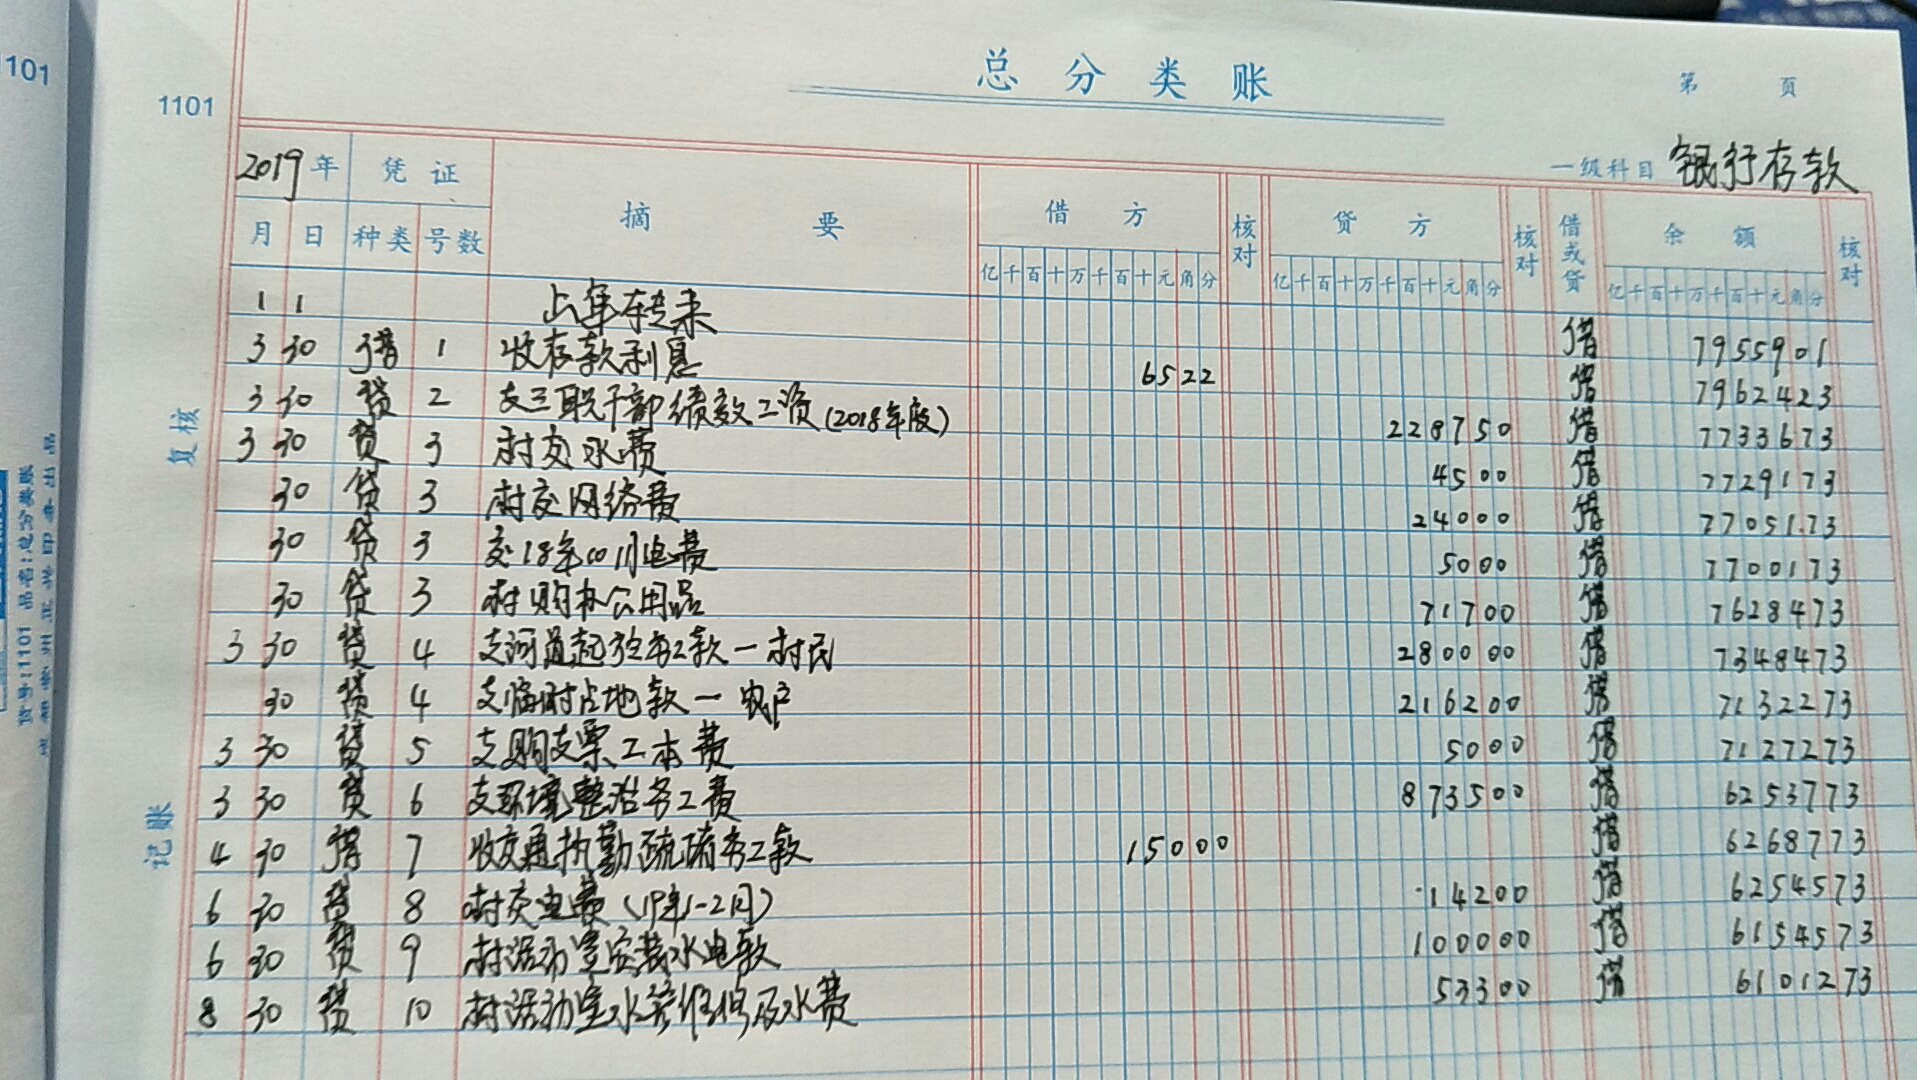 101
1101
总分类账
第 页
一级科目 银行存款
2019年 凭证 摘要 借方 核对 贷方 核对 借或贷 余额 核对
月 日 种类 号数 亿千百十万千百十元角分 亿千百十万千百十元角分 亿千百十万千百十元角分
1 1 上年转来 借 7955901
3 30 借 1 收存款利息 6522 借 7962423
3 30 贷 2 支三职干部绩效工资(2018年度) 228750 借 7733673
3 30 贷 3 村交水费 4500 借 7729173
30 贷 3 村交网络费 24000 借 7705173
30 贷 3 交18年10月电费 5000 借 7700173
30 贷 3 村购办公用品 71700 借 7628473
3 30 贷 4 支河道起挖务工款一村民 280000 借 7348473
30 贷 4 支临时占地款一农户 216200 借 7132273
3 30 贷 5 支购支票工本费 5000 借 7127273
3 30 贷 6 支环境整治务工费 873500 借 6253773
4 30 借 7 收交通执勤疏务工款 15000 借 6268773
6 30 贷 8 村交电费(19年1-2月) 14200 借 6254573
6 30 贷 9 村活动室安装水电款 100000 借 6154573
8 30 贷 10 村活动室水管维修及水费 53300 借 6101273
复核
记账